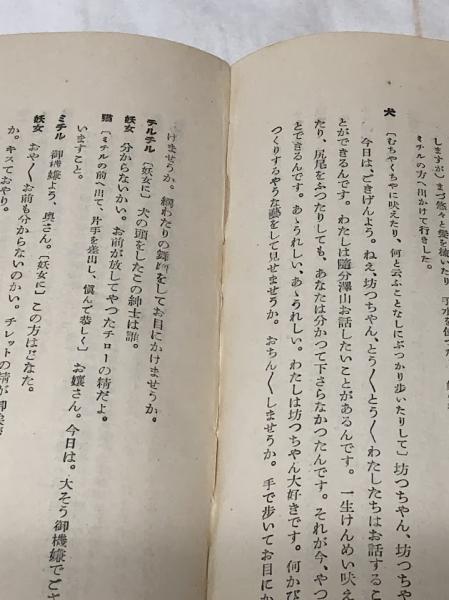 しますが、まづ悠々と髪を梳いたり、手水を使つた
ミチルの方へ出かけて行きした。
犬 〔むちやくちやに吠えたり、何と云ふことなしにぶつかり歩いたりして〕坊つちやん、坊つちやん、
今日は、ごきげんよう。ねえ、坊つちやん、とう〱とう〱わたしたちはお話するこ
とができるんです。わたしは隨分澤山お話したいことがあるんです。一生けんめい吠え
たり、尻尾をふつたりしても、あなたは分かつて下さらなかつたんです。それが今、やつ
とできるんです。あゝうれしい、あゝうれしい。わたしは坊つちやん大好きです。何かび
つくりするやうな藝をして見せませうか。おちん〱しませうか。手で歩いてお目にか
けませうか。綱わたりの舞踊をしてお目にかけませうか。
チルチル 〔妖女に〕犬の頭をしたこの紳士は誰。
妖女 分からないかい。お前が放してやつたチローの精だよ。
猫 〔ミチルの前へ出て、片手を差出し、愼んで恭しく〕お孃さん。今日は。大そう御機嫌でござ
いますこと。
ミチル 御機嫌よう、奥さん。〔妖女に〕この方はどなた。
妖女 おや〱お前も分からないのかい。チレットの精が御挨拶
か。キスておやり。